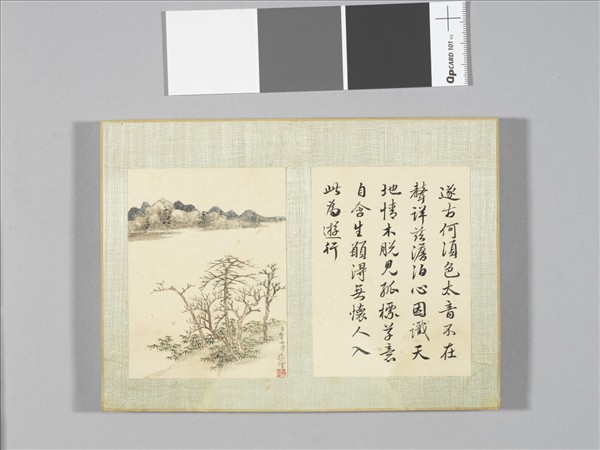 邃古何須色太音不在
聲詳茲澹泊心因識天
地情木脫見孤標草意
自含生願得無懷人入
此為遊行
QPCARD 101 v2